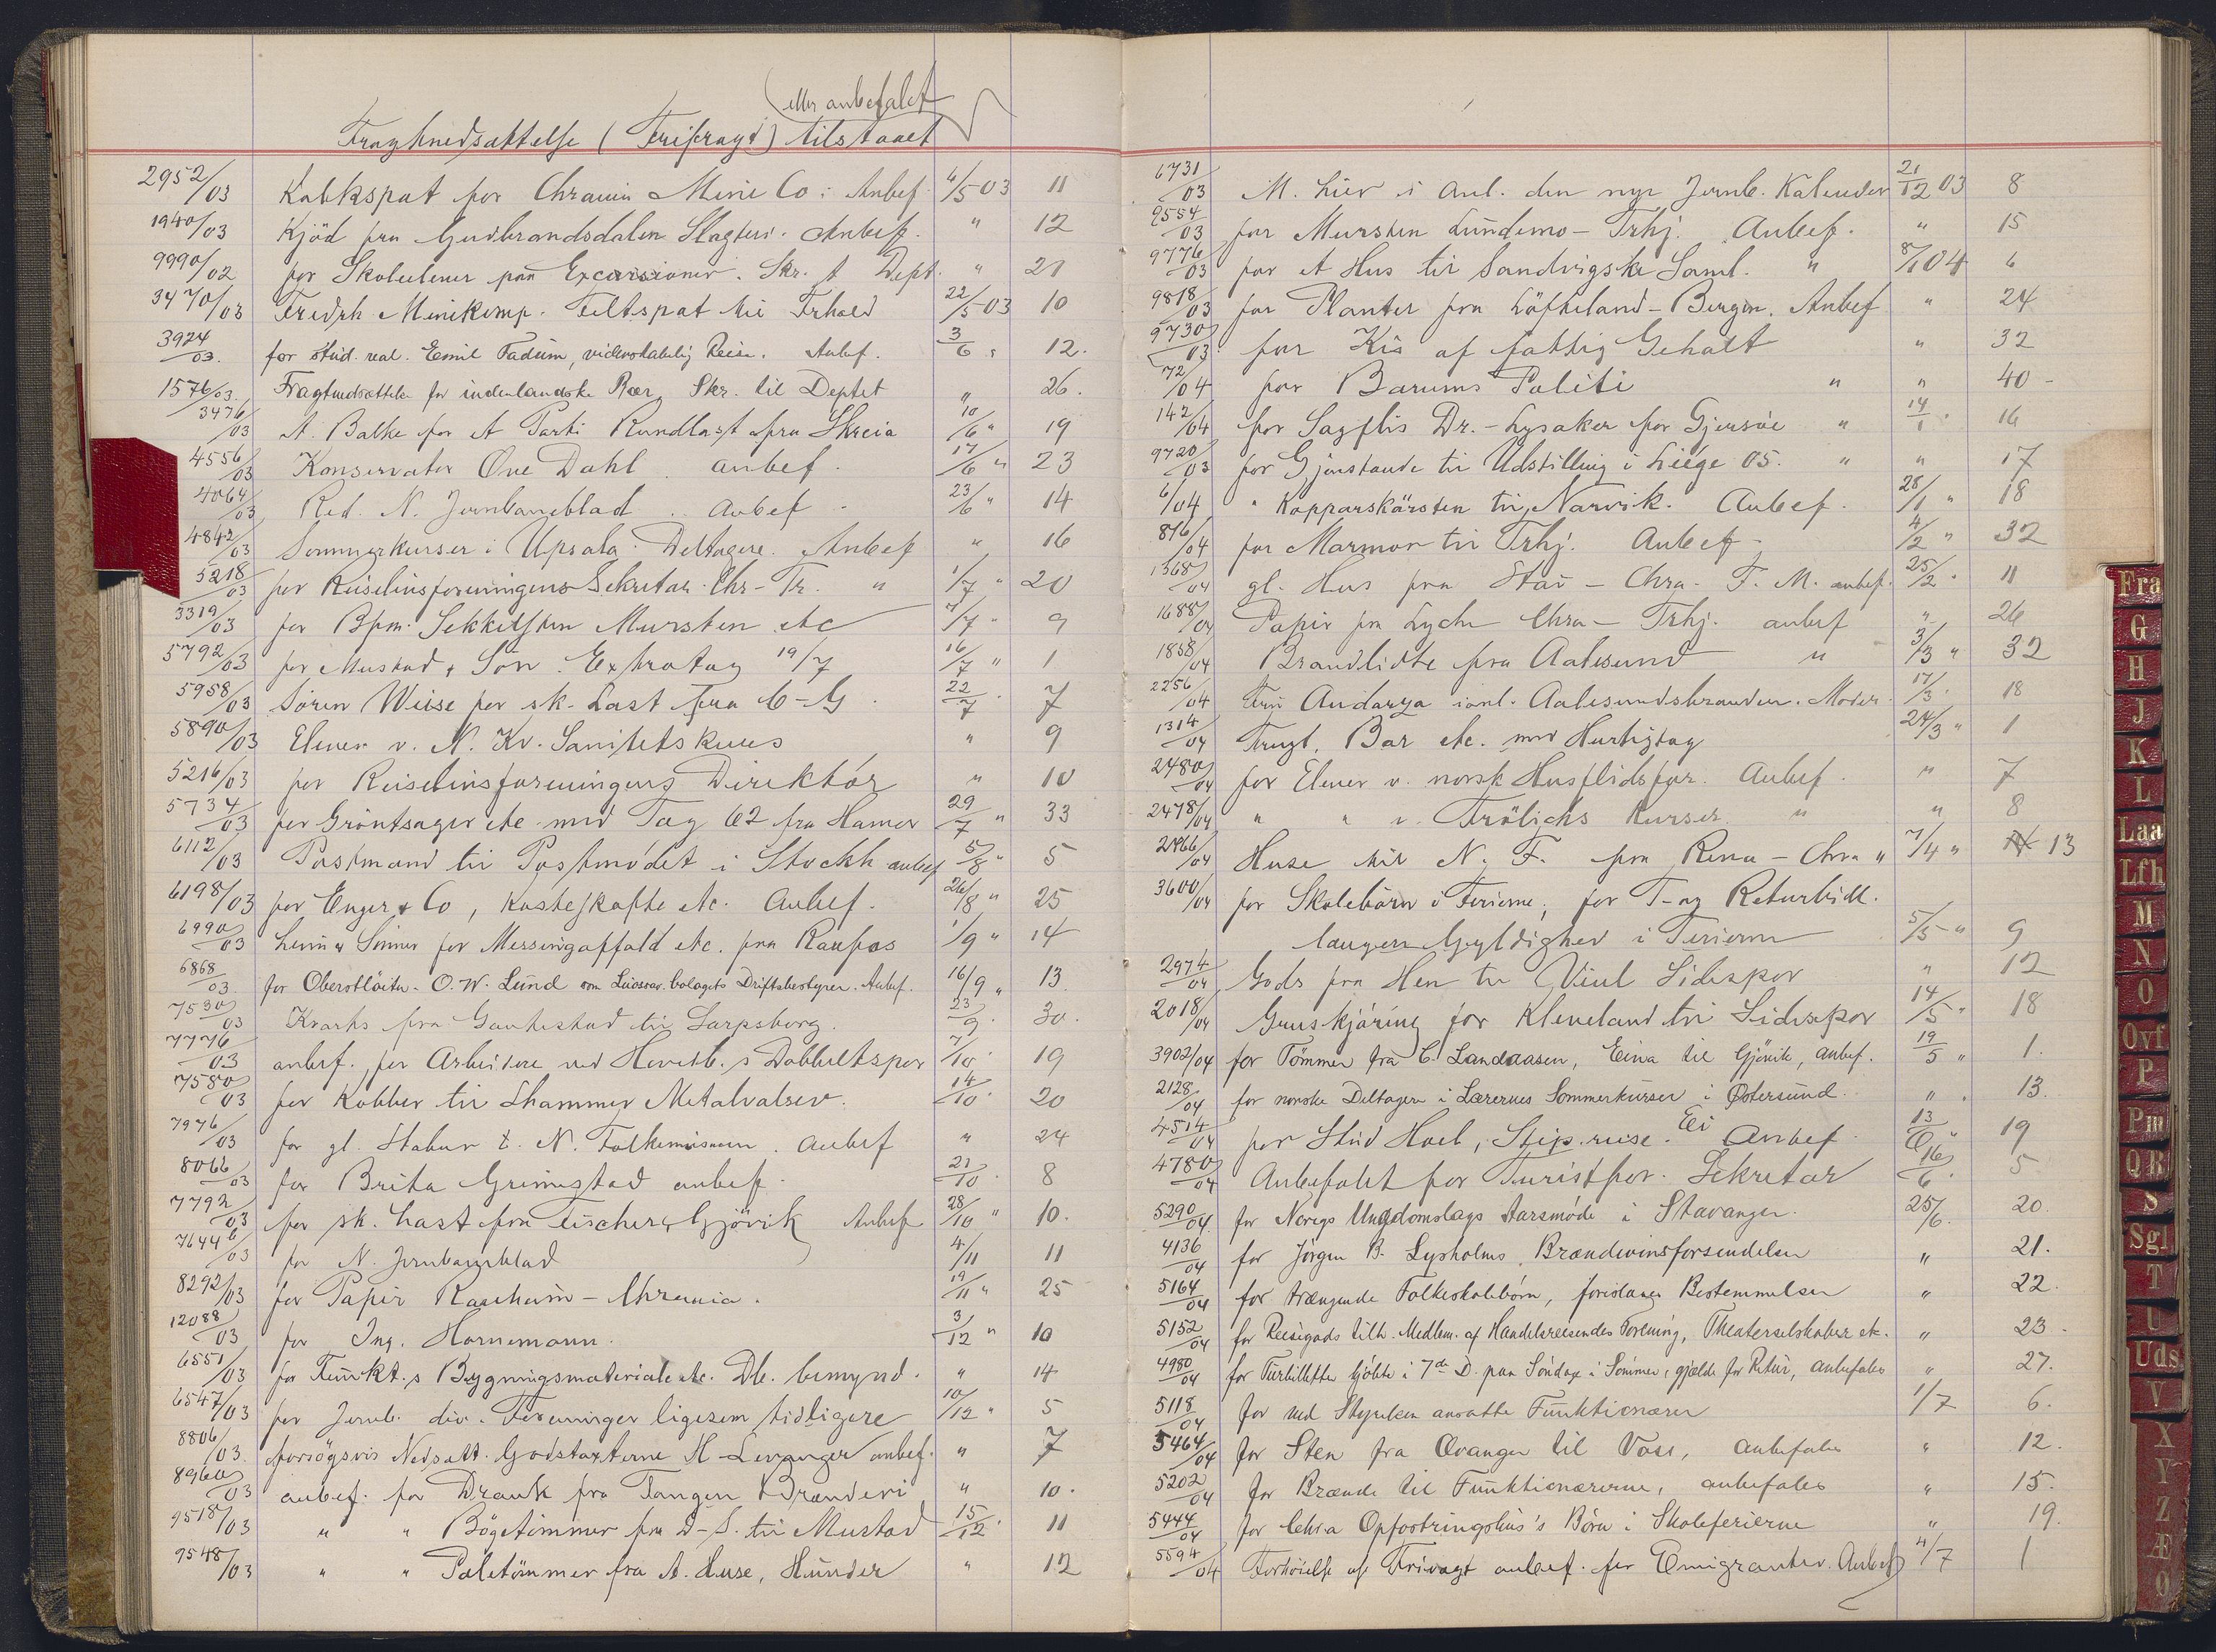 eller anbefalet
Fragtnedsættelse (Frifragt) tilstaaet
2952/03 Kalkspat for Chrania Mine Co: Anbef. 6/5 03 11
1940/03 Kjöd fra Gudbrandsdalen Slagteri. Anbef. " 12
9990/02 for Skoleelever paa Excursioner. Skr. t Dept. " 21
3470/03 Fredrh. Minekomp. Feltspat til Frhald 22/5 03 10
3924/03. for stud. real. Emil Fadum, videnskabelig Reise. Anbef. 3/6 " 12.
1576/03. Fragtnedsættelse for indenlandske Bær, Skr. til Deptet " 26.
3476/03 A. Balke for et Parti Rundlast fra Skreia 10/6 " 19
4556/03 Konservator Ove Dahl. anbef. 17/6 " 23
4064/03 Red. N. Jernbaneblad. anbef. 23/6 " 14
4842/03 Sommerkurser i Upsala. Deltagere. Anbef " 16
5218/03 for Reiselivsforeningens Sekretær. Chr-Tr. " 1/7 " 20
3319/03 for Bpm. Sekkelsten Mursten etc 7/7 " 9
5792/03 for Mustad & Sön. Extratog 19/7 16/7 " 1
5958/03 Sören Wiise for sk. Last fra C-G. 22/7 . 7
5890/03 Elever v. N. Kv. Sanitetskurs " 9
5216/03 for Reiselivsforeningens Direktör " 10
5734/03 for Gröntsager etc. med Tog 62 fra Hamar 29/7 " 33
6112/03 Postmænd til Postmödet i Stockh. anbef 5/8 " 5
6198/03 for Enger & Co, Kosteskafte etc. Anbef. 26/8 " 25
6990/03 Heim & Sönner for Messingaffald etc. fra Raufos 1/9 " 14
6868/03 for Oberstlöitn. O. W. Lund som Luossav. bolagets Driftsbestyrer. Anbef. 16/9 " 13.
7530/03 Kvarts fra Gautestad til Sarpsborg. 23/9 . 30.
7776/03 anbef. for Arbeidere ved Hovedb.s Dobbeltspor 7/10 . 19
7580/03 for Kobber til Skammer Metalvalsev. 14/10 . 20
7976/03 for gl. Stabur t. N. Folkemuseum. anbef " 24
8066/03 for Brita Grimestad anbef. 21/10 . 8
7792/03 for sk. Last fra Fischer, Gjövik Anbef 28/10 " 10.
7644/03 for N. Jernbaneblad 4/11 11
8292/03 for Papir Ranheim – Chrania. 19/11 " 25
12088/03 for Ing. Hornemann. 3/12 " 10
6551/03 for Funkt.s Bygningsmateriale etc. Db. bemynd. " 14
6547/03 for Jernb. div. Foreninger ligesom tidligere 10/12 " 5
8806/03. forsögsvis Nedsatt. Godstaxterne H-Levanger anbef. " 7
8960/03 anbef. for Drank fra Tangen Brænderi " 10.
9518/03 " " Bögetömmer fra D-S. til Mustad 15/12 . 11
9548/03 " " Poletömmer fra A. Huse, Hunder " 12
6731/03 M. Lier i Anl. den nye Jernb. Kalender 21/12 03 8
9554/03 for Mursten Lundemo – Trhj. Anbef. " 15
9776/03 for et Hus til Sandvigske Saml. " 8/1 04 6
9818/03 for Planter fra Löfteland – Bergen. Anbef " 24
9730/03. for Kis af fattig Gehalt " 32
72/04 for Bærums Politi " " 40 -
142/04 for Sagflis Dr. – Lysaker for Gjersöe " 14/1 . 16
9720/03 for Gjenstande til Udstilling i Liége 05. " " 17
6/04 " Kopparskärsten til Narvik. Anbef. 28/1 " 18
816/04 for Marmor til Trhj. Anbef. 4/2 " 32
1368/04 gl. Hus fra Stai – Chra. F. M. anbef. 25/2 . 11
1688/04 Papir fra Lycke Chra – Trhj. anbef " 26
1858/04 Brandlidte fra Aalesund " 3/3 " 32
2256/04 Fru Andarza ianl. Aalesundsbranden. Moder. 17/3 . 18
1314/04 Frugt, Bær etc. med Hurtigtog 24/3 " 1
2480/04 for Elever v. norsk Husflidsfor. Anbef. " 7
2478/04 " " v. Frölichs Kurser. " " 8
2466/04 Huse til N. F. fra Rena – Chra " 7/4 " 13
3600/04 for Skolebörn i Ferierne, for T- og Returbill.
længere Gyldighed i Ferierne 5/5 " 9
2974/04 Gods fra Hen til Viul Sidespor " 12
2018/04 Gruskjöring for Kleveland til Sidespor 14/5 " 18
3902/04 for Tömmer fra C. Landaasen, Eina til Gjövik, anbef. 19/5 " 1.
2128/04 for norske Deltagere i Lærernes Sommerkurser i Östersund. " . 13.
4514/04 for Stud Hoel, Stip. reise. Ei Anbef. 13/6 " 19
4780/04 Anbefalet for Turistfor. Sekretær 16/6 . 5
5290/04 for Noregs Ungdomslags Aarsmöde i Stavanger. 25/6. 20.
4136/04 for Jörgen B. Lysholms Brændevinsforsendelser " 21.
5164/04 for trængende Folkeskolebörn, foreslaaes Bestemmelser " 22.
5152/04 for Reisegods tilh. Medlem. af Handelsreisendes Forening, Theaterselskaber etc. " 23.
4980/04 for Turbilletter kjöbte i 7de D. paa Söndage i Sommer, gjælde for Retur, anbefales " 27.
5118/04 for ved Styrelsen ansatte Funktionærer 1/7 6.
5464/04 for Sten fra Evanger til Voss, anbefales " 12.
5202/04 for Brænde til Funktionærerne, anbefales " 15.
5444/04 for Chr.a Opfostringshus's Börn i Skoleferierne " 19.
5594/04 Forhöielse af Frivægt anbef. for Emigranter. Anbef 4/7 1
Fra
G
H
J
K
L
Laa
Lfh
M
N
O
Ovf
P
Pm
QR
S
Sgl
T
U
Uds
V
X
Y
Z
Æ
Ø